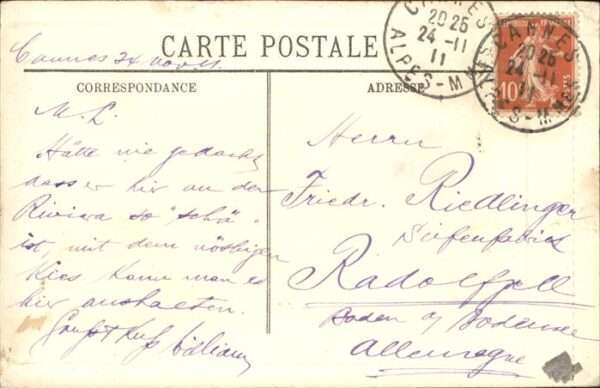 CARTE POSTALE
CORRESPONDANCE
ADRESSE
CANNES
20 25
24 -11
11
ALPES-M
CANNES
20 25
24 -11
11
10
Cannes 24 nov 11.
M. L.
Hätte nie gedacht
dass er hir an der
Riviera so "schö"
ist, mit dem nöthigen
Kies kann man es
hier aushalten.
William
Herrn
Friedr. Riedlinger
Seifenfabrik
Radolfzell
Baden a/ Bodensee
Allemagne